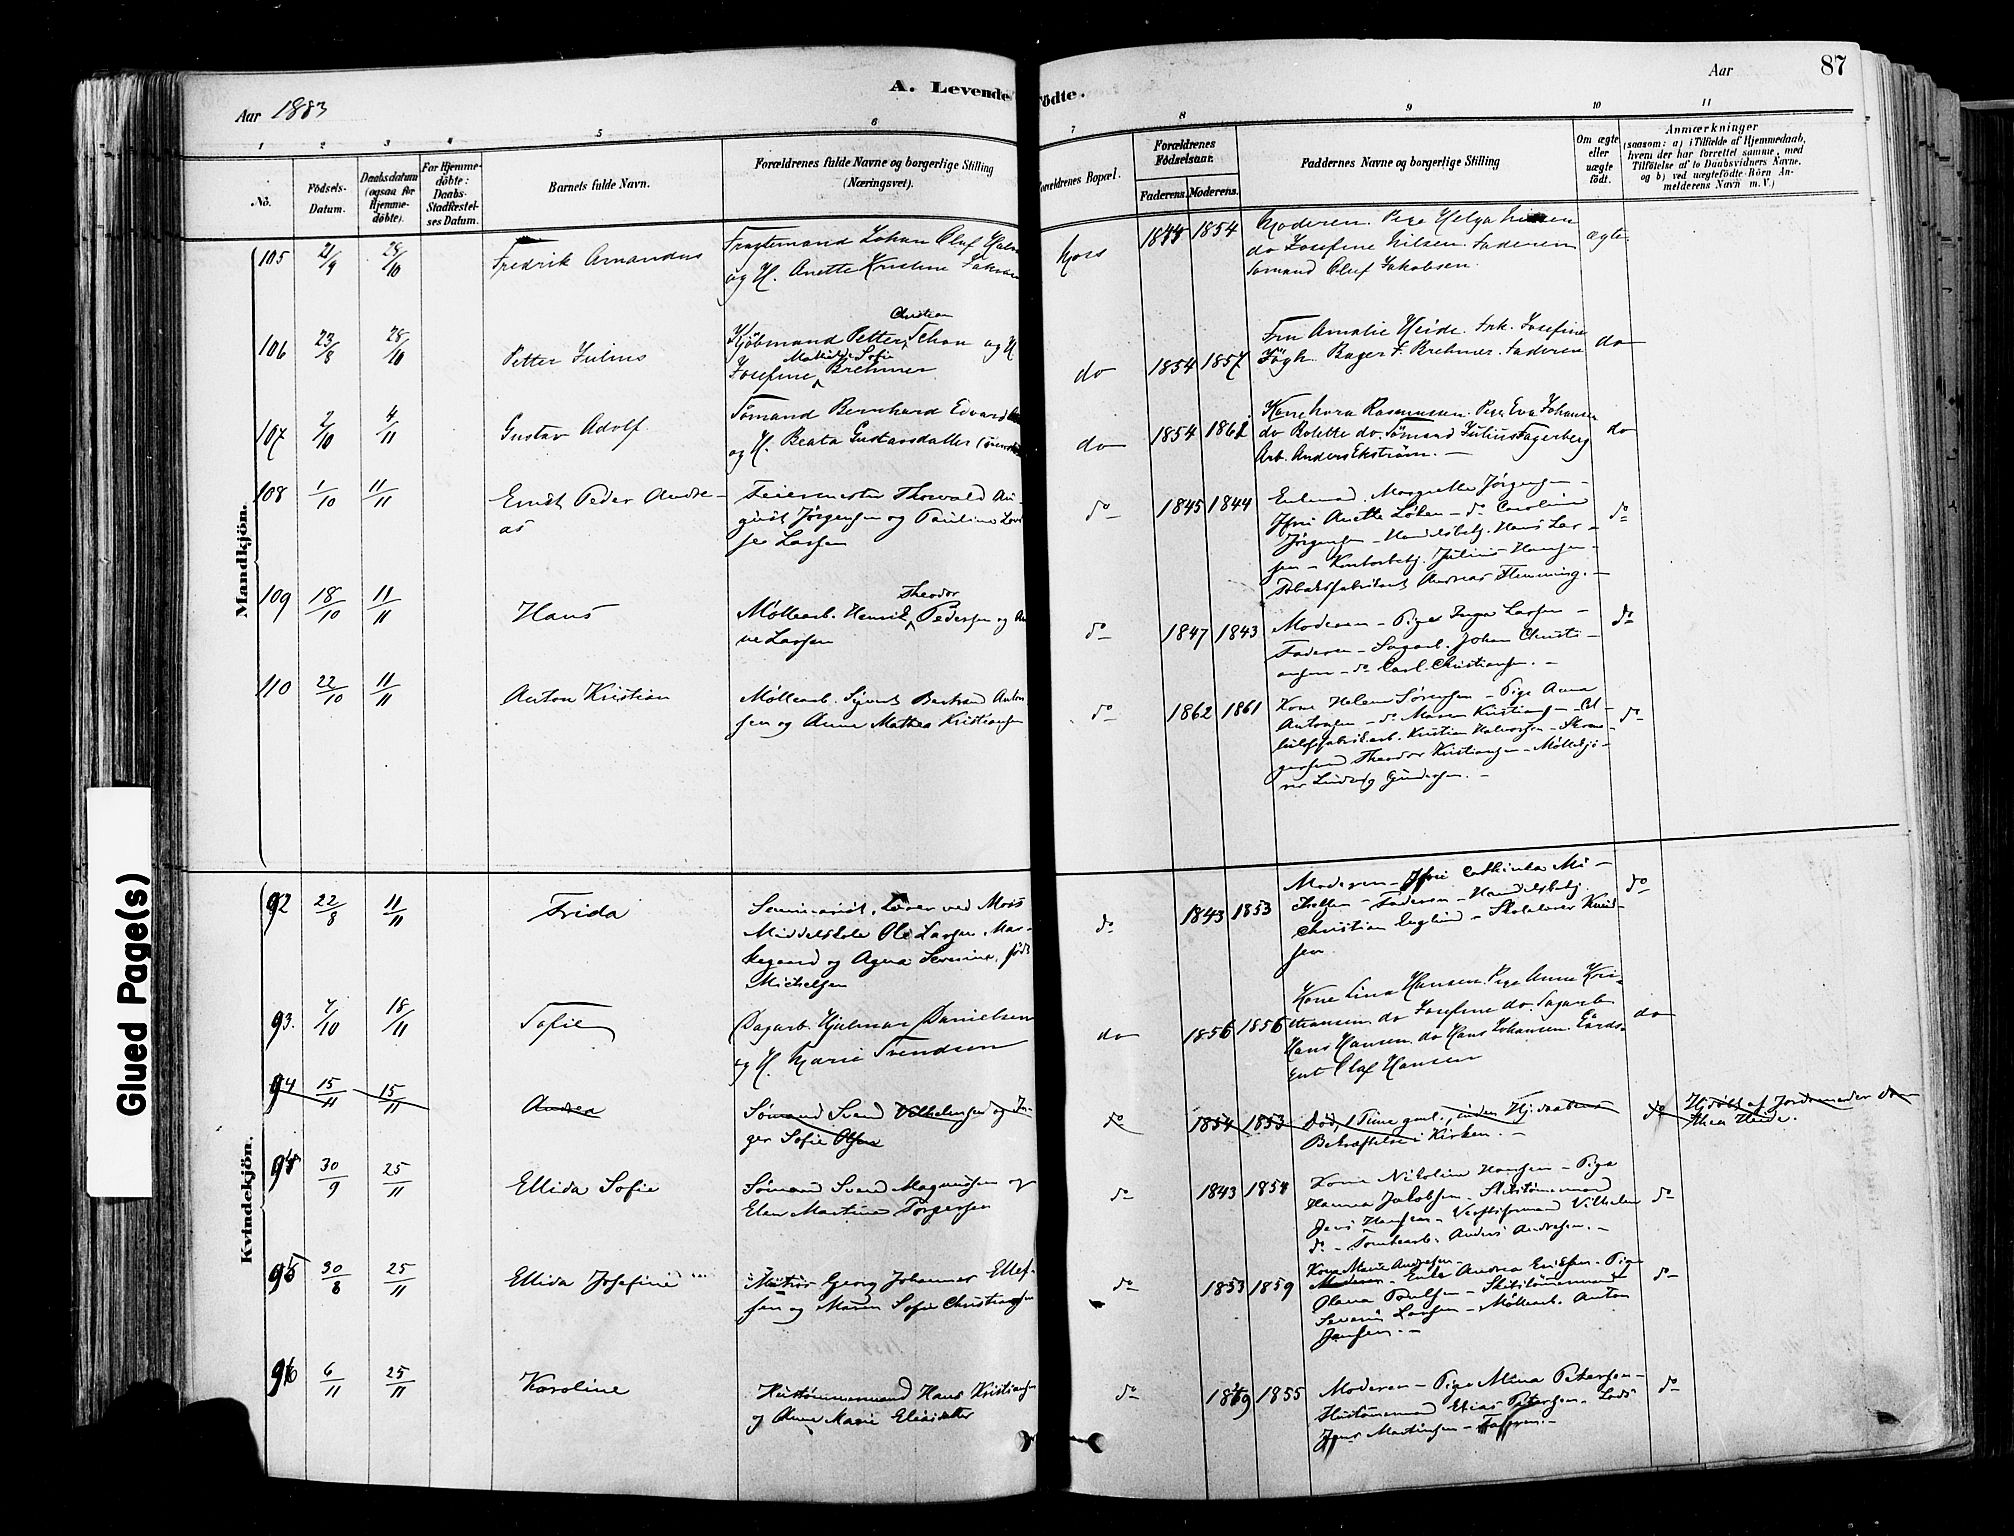 Aar 1883
A. Levende
fødte.
Aar
87
1 2 3 4 5 6 7 8 9 10 11
No.
Födsels-
Datum.
Daabsdatum
(ogsaa for
Hjemme-
döbte).
For Hjemme-
döbte:
Daabs-
Stadfæstel-
ses Datum.
Barnets fulde Navn.
Forældrenes fulde Navne og borgerlige Stilling
(Næringsvei).
Forældrenes Bopæl.
Forældrenes
Födselsaar.
Faderens. Moderens.
Faddernes Navne og borgerlige Stilling
Om ægte
eller
uægte
födt.
Anmærkninger
(saasom: a) i Tilfælde af Hjemmedaab,
hvem der har forrettet samme, med
Tilföielse af to Daabsvidners Navne,
og b) ved uægtefödte Börn An-
melderens Navn m. V.)
Mandkjön.
105 21/9 28/10
Fredrik Amandus
Fragtemand Johan Oluf
og H. Anette Kristine
Moss
1844 1854
Moderen. Pige Helga
do Josefine Nilsen. Faderen
Sømand Oluf Jakobsen.
ægte
106 23/8 28/10
Petter Julius
Christian
Kjöbmand Petter Schou og H
Mathilde Sofie
Josefine Brehmer
do
1854 1857
Fru Amalie Heide. Frk. Josefine
Fögh. Bager F. Brehmer. Faderen
do
107 2/10 4/11
Gustav Adolf.
Sömand Bernhard Edvard
og H. Beata Gustavsdatter
do
1854 1862
Kone Nora Rasmussen. Pige Eva Johansen
do Bolette do. Sömand Julius Fagerberg
Arb. Anders Ekström. —
do
108 1/10 11/11
Ernst Peder Andre-
as
Feiermester Thorvald Au-
gust Jørgensen og Pauline Lovi
se Larsen
do
1845 1844
Enkemad. Margrethe Jørgensen —
Jfru Anette Løken — do Caroline
Jørgensen — Handelsbetj. Hans Lar-
sen — Kontorbetj. Julius Hansen —
Tobaksfabrikant Andreas Flemming. —
do
109 18/10 11/11
Hans
Theodor
Møllearb. Henrik Pedersen og An
ne Larsen
do
1847 1843
Moderen — Pige Inga Larsen —
Faderen — Sagarb. Johan Christi-
ansen — do Carl Christiansen. —
do
110 22/10 11/11
Anton Kristian
Møllearb. Syvert Bertrand Anton
sen og Anne Mathea Kristiansen
do
1862 1861
Kone Helene Sørensen — Pige Anna
Antonsen — do Maren Kristiansen —
Kristian Halvorsen — Skoma-
gersvend Theodor Kristiansen — Møllebju-
rer Ludvig Gundersen. —
do
Kvindekjön.
92 22/8 11/11
Frida
Seminarist, Lærer ved Moss
Middelskole Ole Larsen Mar-
kegaard og Agna Severine, født
Michelsen
do
1843 1853
Moderen — Jfru Cathinka Mi-
chelsen — Faderen — Handelsbetj.
Christian Englund — Skolelærer Knud-
sen
do
93. 7/10 18/11
Sofie
Dagarb. Hjelmar Danielsen
og H. Marie Svendsen
do
1856 1856
Kone Lina Hansen. Pige Anne Kris-
tiansen do Josefine do. Sagarb.
Hans Hansen. do Hans Johansen. Gårds-
Olaf Hansen
do
94 15/11 15/11
Andrea
Sømand Svend Vilhelmsen og In-
ger Sofie Olsen
do
1854 1853
Død, 1 Time gml., inden Hj.daabens
Bekræftelse i Kirken. —
do
Hj.døbt af Jordemoder Do-
thea Heide.
94 30/9 25/11
Ellida Sofie
Sømand Svend Magnussen og
Elen Martine Torgersen
do
1843 1854
Kone Nikoline Hansen — Pige
Hanna Jakobsen — Skibstømmermand
Jens Hansen — Verftsformand Vilhelm
do — Tomtearb. Anders Andresen. —
do
95 30/8 25/11
Ellida Josefine
Matros Georg Johannes Ellef-
sen og Maren Sofie Christiansen
do
1853 1859
Kone Marie Andresen
Moderen — Enke Andrea Eriksen — Pige
Olava Poulsen — Skibstömmermand
Severin Larsen — Møllearb. Anton
Jensen. —
do
96 6/11 25/11
Karoline
Hustömmermand Hans Kristiansen
og Anne Marie Eliasdatter
do
1849 1855
Moderen — Pige Mina Petersen —
Hustömmermand Elias Petersen — Lods
Jens Martinsen — Faderen. —
do
Glued Page(s)